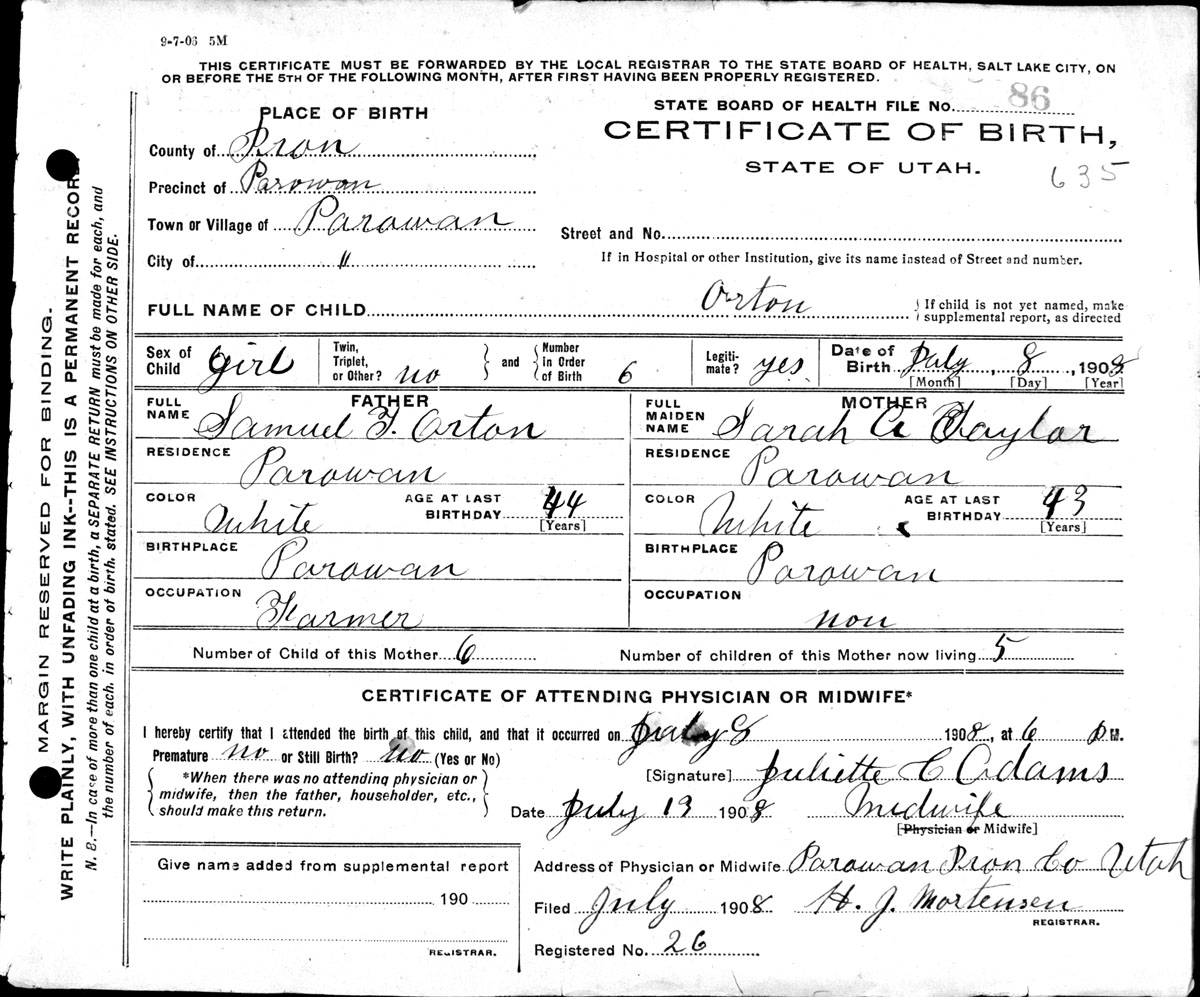 9-7-06 5M
THIS CERTIFICATE MUST BE FORWARDED BY THE LOCAL REGISTRAR TO THE STATE BOARD OF HEALTH, SALT LAKE CITY, ON
OR BEFORE THE 5TH OF THE FOLLOWING MONTH, AFTER FIRST HAVING BEEN PROPERLY REGISTERED.
STATE BOARD OF HEALTH FILE No. 86
CERTIFICATE OF BIRTH,
STATE OF UTAH.
635
PLACE OF BIRTH
County of Iron
Precinct of Parowan
Town or Village of Parowan
City of "
Street and No.
If in Hospital or other Institution, give its name instead of Street and number.
FULL NAME OF CHILD Orton
If child is not yet named, make
supplemental report, as directed
Sex of Child girl
Twin, Triplet, or Other? no
and
Number In Order of Birth 6
Legitimate? yes
Date of Birth July 8, 1908
[Month] [Day] [Year]
FATHER
FULL NAME Samuel T. Orton
RESIDENCE Parowan
COLOR White
AGE AT LAST BIRTHDAY 44
[Years]
BIRTHPLACE Parowan
OCCUPATION Farmer
MOTHER
FULL MAIDEN NAME Sarah A Taylor
RESIDENCE Parowan
COLOR White
AGE AT LAST BIRTHDAY 43
[Years]
BIRTHPLACE Parowan
OCCUPATION non
Number of Child of this Mother 6
Number of children of this Mother now living 5
CERTIFICATE OF ATTENDING PHYSICIAN OR MIDWIFE*
I hereby certify that I attended the birth of this child, and that it occurred on July 8 1908, at 6 P M.
Premature no or Still Birth? no (Yes or No)
*When there was no attending physician or
midwife, then the father, householder, etc.,
should make this return.
[Signature] Juliette C Adams
Date July 13 1908 Midwife
[Physician or Midwife]
Give name added from supplemental report
190
REGISTRAR.
Address of Physician or Midwife Parowan Iron Co Utah
Filed July 1908 H. J. Mortensen
REGISTRAR.
Registered No. 26
MARGIN RESERVED FOR BINDING.
WRITE PLAINLY, WITH UNFADING INK--THIS IS A PERMANENT RECORD.
N. B.—In case of more than one child at a birth, a SEPARATE RETURN must be made for each, and
the number of each, in order of birth, stated. SEE INSTRUCTIONS ON OTHER SIDE.